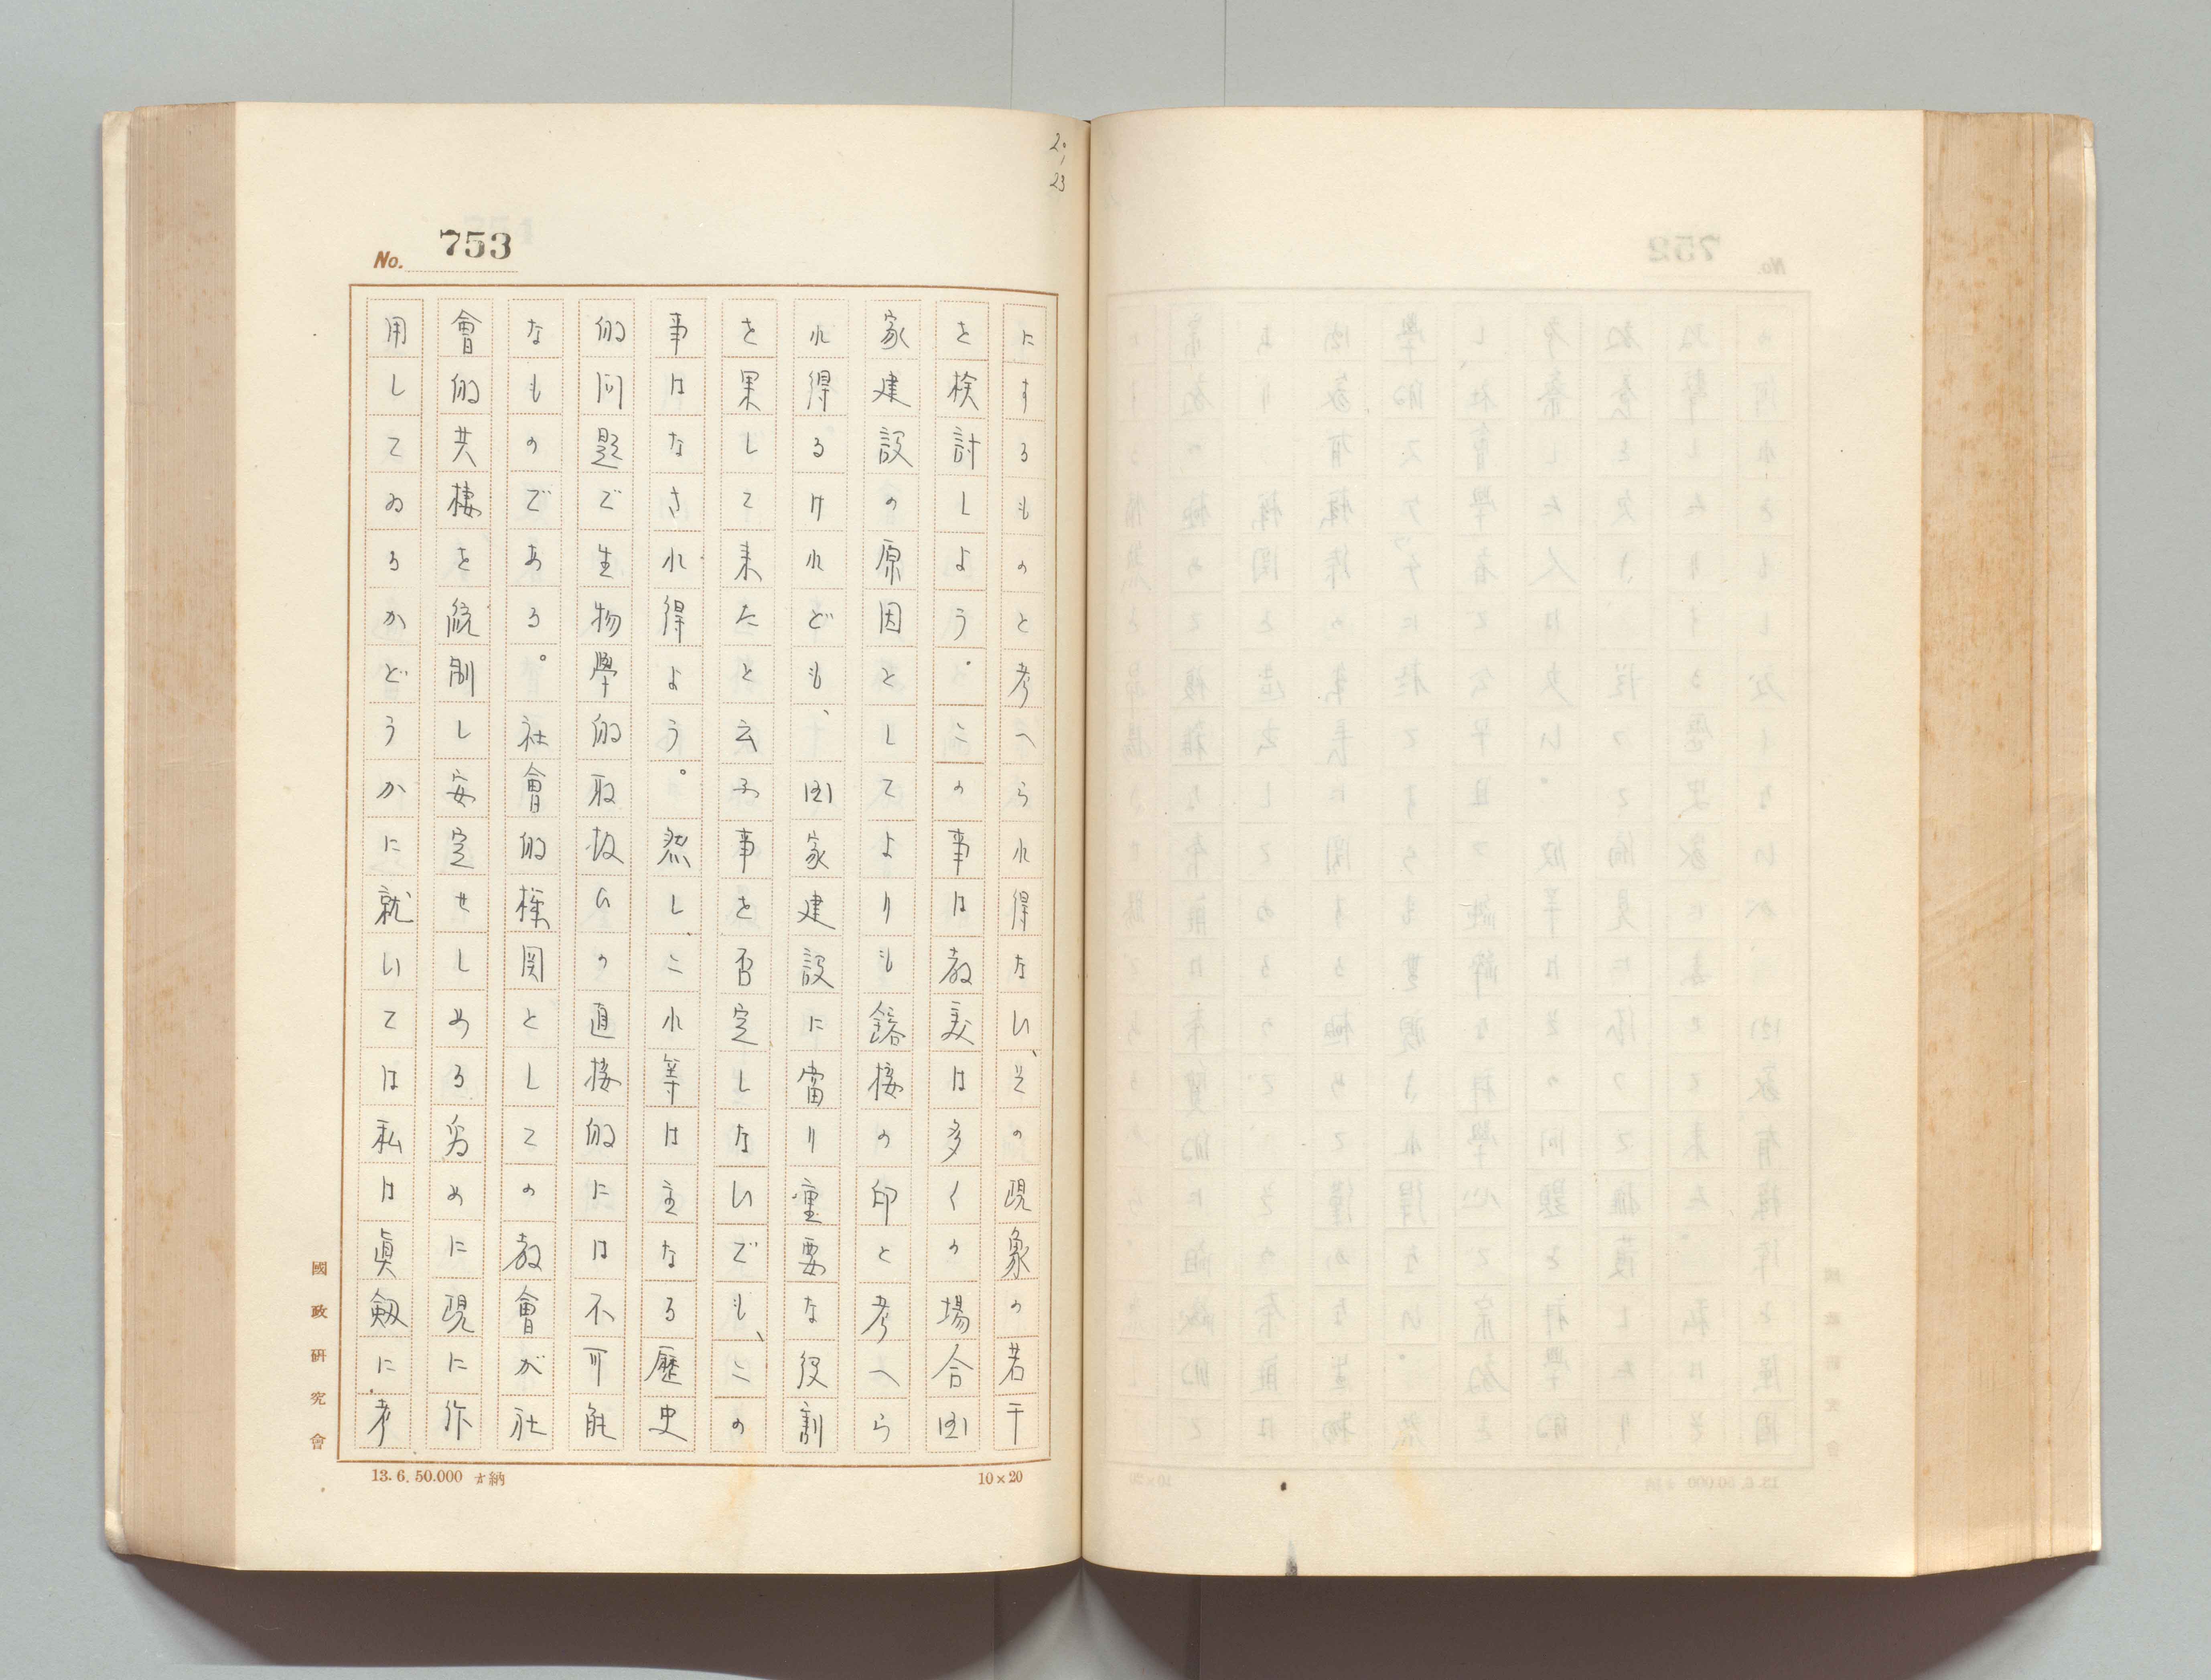 20,
23
No. 753
にするものと考へられ得ない、その現象の若干
を検討しよう。この事は教義は多くの場合国
家建設の原因としてよりも鎔接の印と考へら
れ得るけれども、国家建設に當り重要な役割
を果して来たと云ふ事を否定しないでも、この
事はなされ得よう。然し、これ等は主なる歴史
的问題で生物學的取扱ひの直接的には不可能
なものである。社會的機関としての教會が社
會的共棲を統制し安定せしめる為めに現に作
用してゐるかどうかに就いては私は眞剱に考
國政研究會
13. 6. 50.000 納
10×20